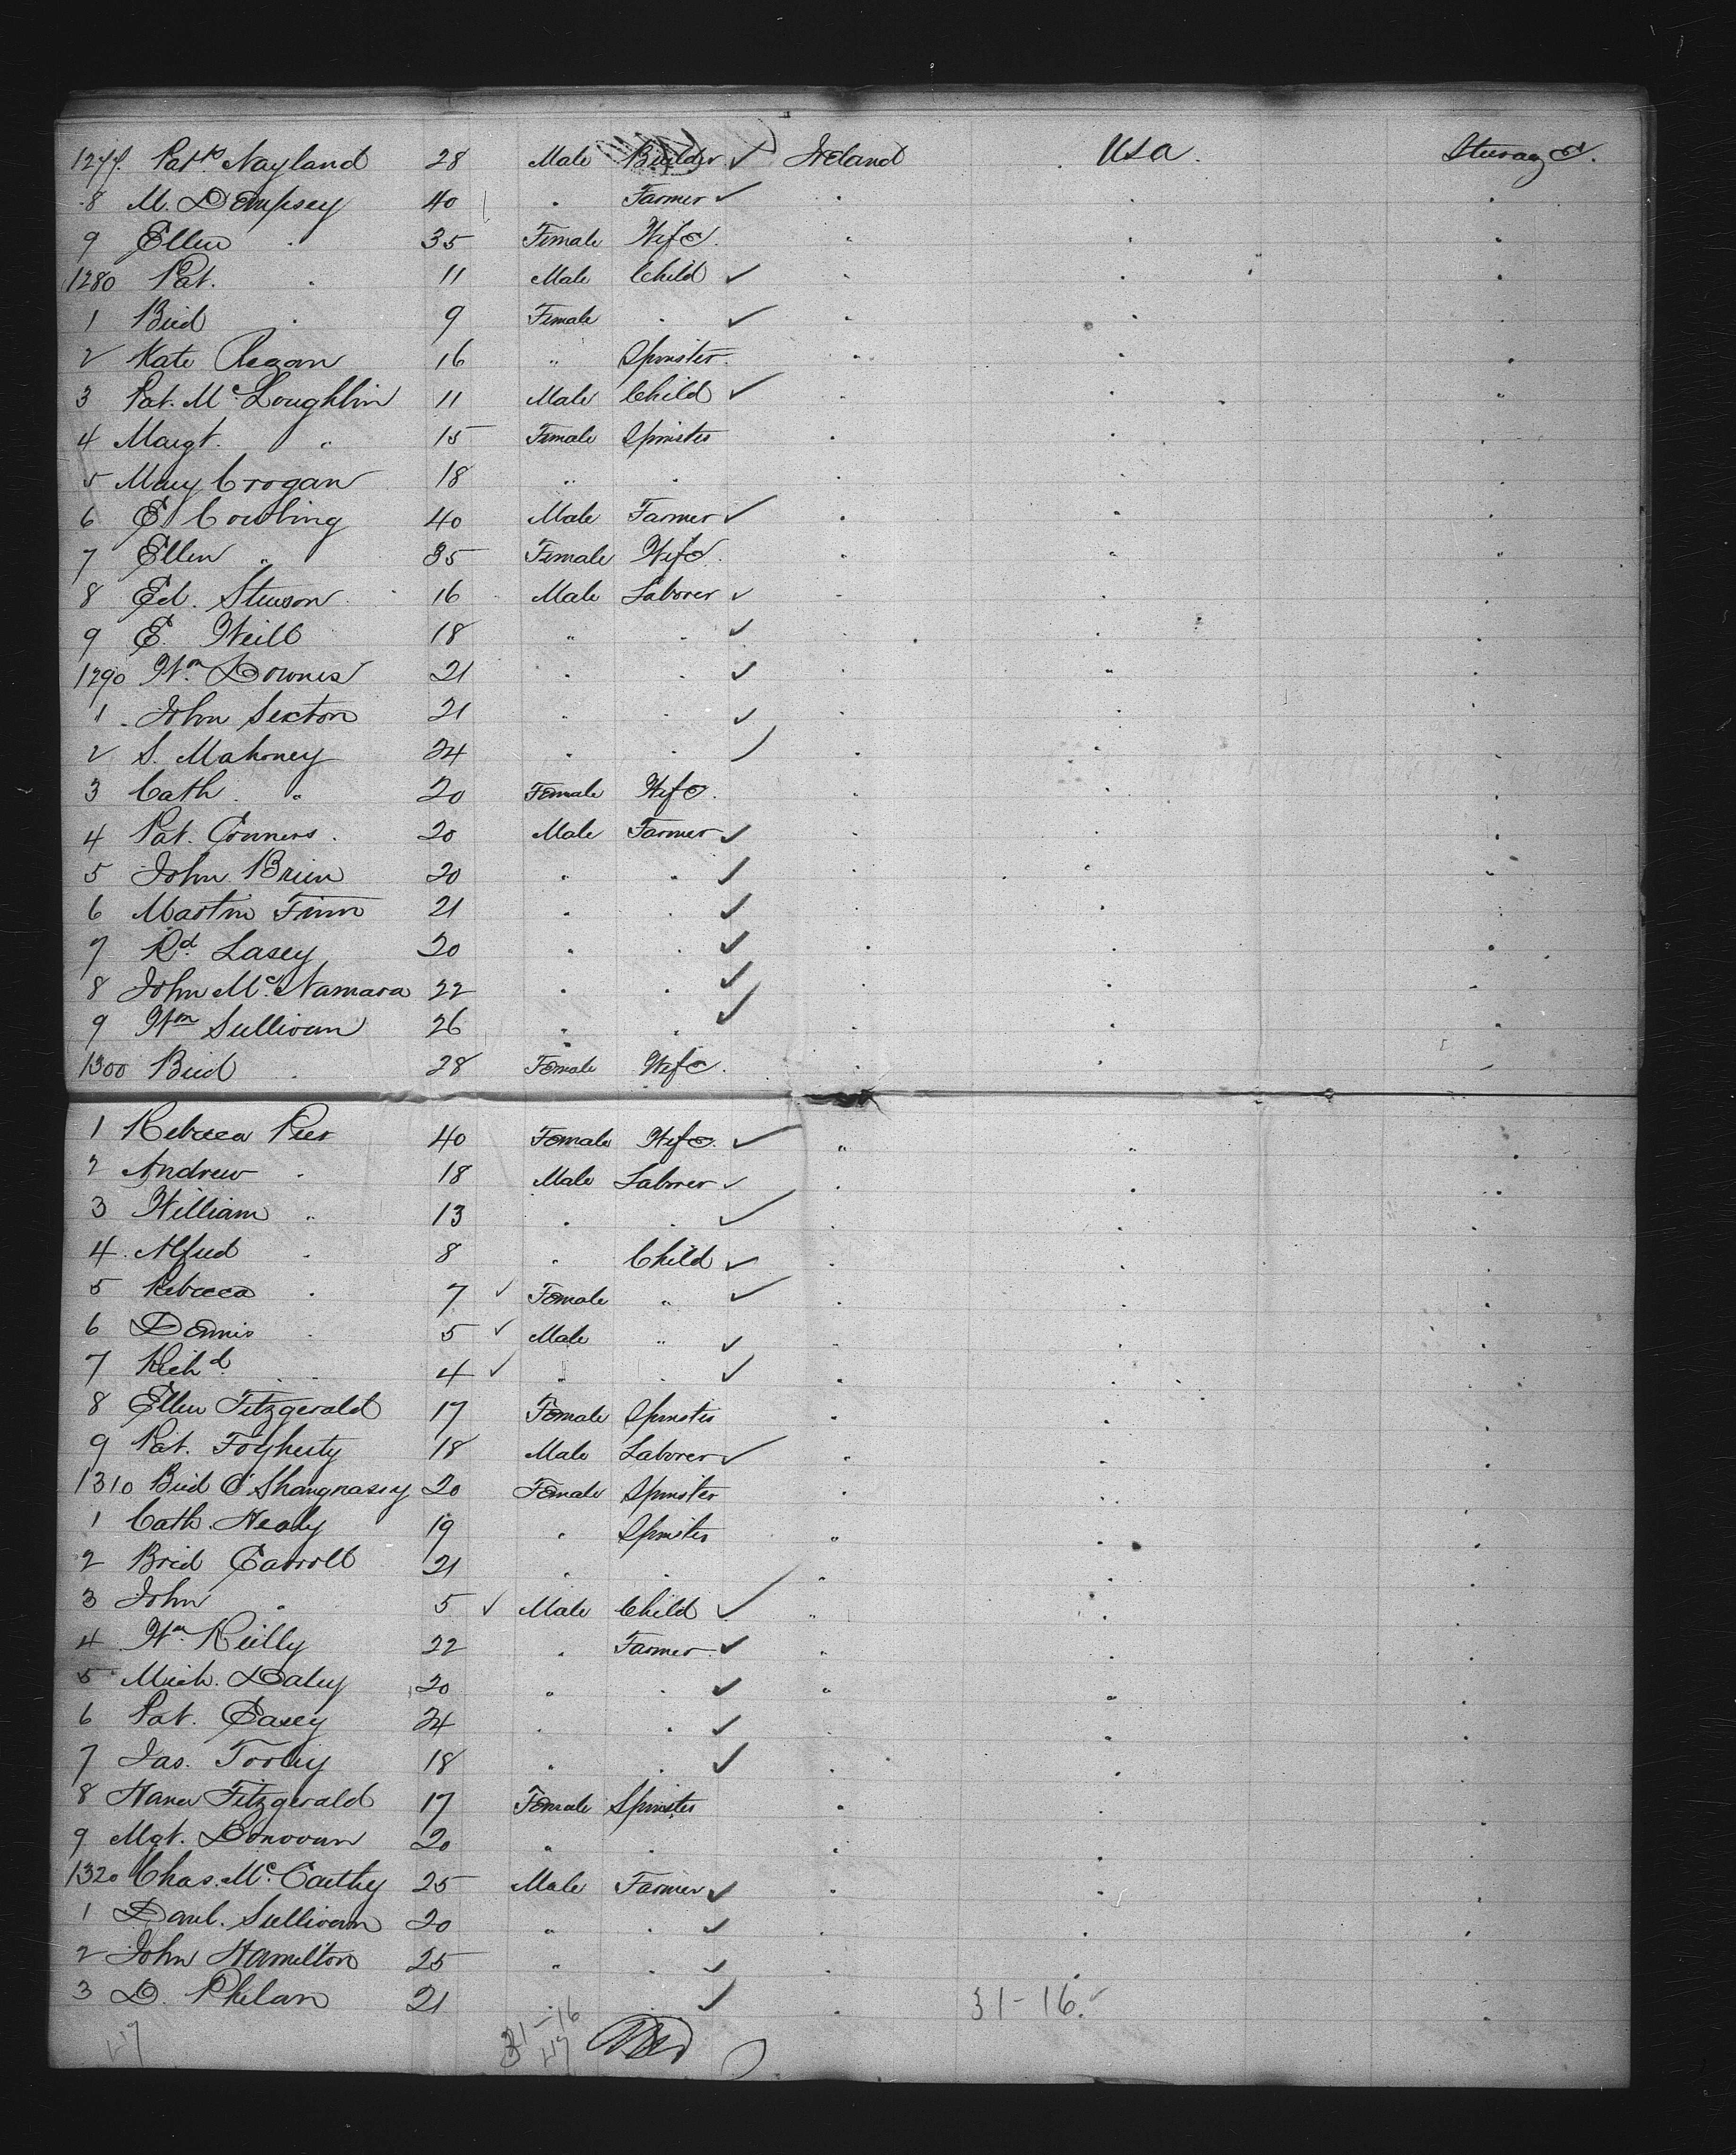 1277. Patk. Nayland 28 Male Builder ✓ Ireland USA. Steerage.
8 M. Dempsey 40 " Farmer ✓ " " "
9 Ellen " 35 Female Wife. " " "
1280 Pat. " 11 Male Child ✓ " " "
1 Brid " 9 Female " ✓ " " "
2 Kate Regan 16 " Spinster. " " "
3 Pat. McLoughlin 11 Male Child ✓ " " "
4 Margt. " 15 Female Spinster " " "
5 Mary Crogan 18 " " " " "
6 E. Cowling 40 Male Farmer ✓ " " "
7 Ellen " 35 Female Wife. " " "
8 Ed. Stewson 16 Male Laborer ✓ " " "
9 E. Neill 18 " " ✓ " " "
1290 Wm. Downes 21 " " ✓ " " "
1 John Sexton 21 " " ✓ " " "
2 S. Mahoney 24 " " ✓ " " "
3 Cath. " 20 Female Wife. " " "
4 Pat. Conners. 20 Male Farmer ✓ " " "
5 John Brien 20 " " ✓ " " "
6 Martin Finn 21 " " ✓ " " "
7 Rd. Lasey 20 " " ✓ " " "
8 John McNamara 22 " " ✓ " " "
9 Wm Sullivan 26 " " ✓ " " "
1300 Brid " 28 Female Wife. " " "
1 Rebecca Peer 40 Female Wife. ✓ " " "
2 Andrew " 18 Male Laborer ✓ " " "
3 William " 13 " " ✓ " " "
4 Alfred " 8 " Child ✓ " " "
5 Rebecca " 7 ✓ Female " ✓ " " "
6 Dennis " 5 ✓ Male " ✓ " " "
7 Richd. " 4 ✓ " " ✓ " " "
8 Ellen Fitzgerald 17 Female Spinster " " "
9 Pat. Fogherty 18 Male Laborer ✓ " " "
1310 Brid O'Shangnassy 20 Female Spinster " " "
1 Cath. Healy 19 " Spinster " " "
2 Brid Carroll 21 " " " " "
3 John " 5 ✓ Male Child ✓ " " "
4 Wm. Reilly 22 " Farmer ✓ " " "
5 Mich. Daley 20 " " ✓ " " "
6 Pat. Casey 24 " " ✓ " " "
7 Jas. Toohy 18 " " ✓ " " "
8 Hana Fitzgerald 17 Female Spinster " " "
9 Mgt. Donovan 20 " " " " "
1320 Chas. McCarthy 25 Male Farmer ✓ " " "
1 Danl. Sullivan 20 " " ✓ " " "
2 John Hamilton 25 " " ✓ " " "
3 D. Phelan 21 " " ✓ " 31-16. ✓ "
47 31-16
47